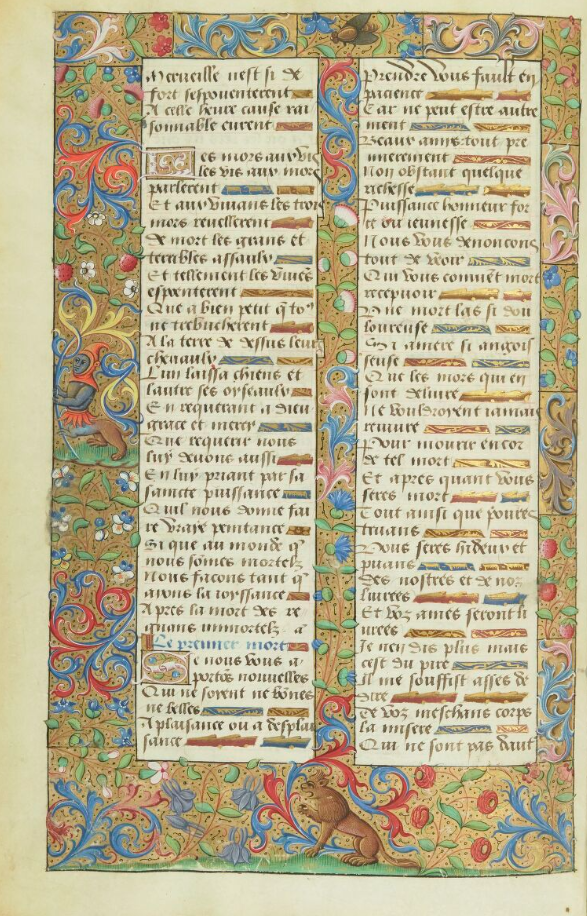 Merveille nest si de
fort sespouenterent
A celle heure cause rai
sonnable eurent
Les mors aux vis
les vis aux mors
parlerent
Et aux vivans les trois
mors reveillerent
de mort les grans et
terribles assaulx
Et tellement les
espouenterent
Que a bien peut q to9
ne trebucherent
A la terre de dessus leurs
chevaulx
Lun laissa chiens et
lautre ses oyseaulx
En requerant a dieu
grace et mercy
Que requerir nous
luy devons aussi
En luy priant par sa
saincte puissance
Quil nous donne fai
re vraye penitance
Si que au monde q
nous somes mortelz
Nous facons tant q
ayons la ioyssance
Apres la mort des re
gnans immortelz
Le premier mort
Se nous vous a
portos nouvelles
Qui ne soyent ne bones
ne belles
A plaisance ou a desplai
sance
Prendre vous fault en
pacience
Car ne peut estre autre
ment
Beaux amys tout pre
mierement
Non obstant quelque
richesse
Puissance honneur for
ce ou ieunesse
Nous vous denoncons
tout de voir
Qui vous convient mort
recepvoir
Une mort las si dou
loureuse
Si amere si angois
seuse
Que les mors qui en
sont delivre
Ne vouldroyent iamais
revivre
Pour mourir encor
de tel mort
Et apres quant vous
seres mort
Tout ainsi que povres
truans
Vous seres hideux et
puans
Des nostres et de noz
livrees
Et voz ames seront li
vrees
Je nen dis plus mais
cest du pire
Il me souffist asses de
dire
De voz meschans corps
la misere
Qui ne sont pas daut